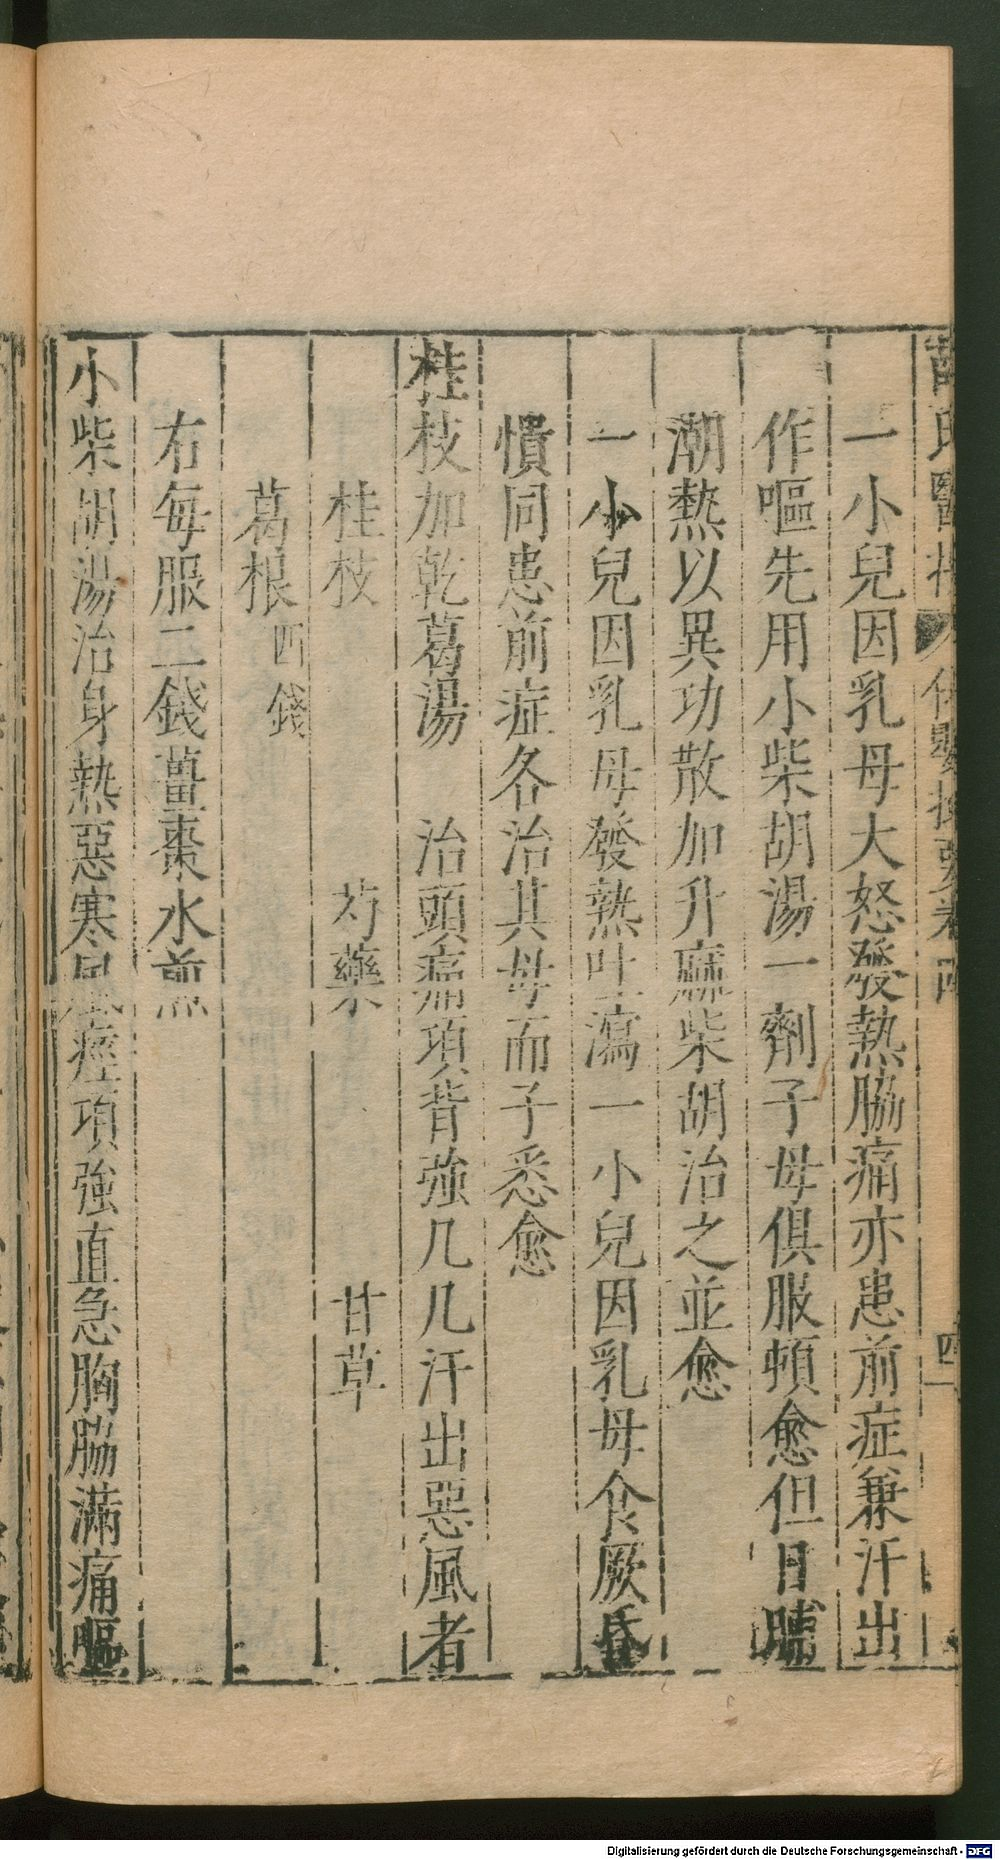 一小兒因乳母大怒發熱脇痛亦患前症兼汗出
作嘔先用小柴胡湯一劑子母俱服頓愈但日晡
潮熱以異功散加升麻柴胡治之並愈
一小兒因乳母發熱吐瀉一小兒因乳母食厥昏
憒同患前症各治其母而子悉愈
桂枝加乾葛湯 治頭痛項背強几几汗出惡風者
桂枝 芍藥 甘草
葛根四錢
右每服二錢薑棗水煎
小柴胡湯治身熱惡寒風痙項強直急胸脇滿痛嘔
Digitalisierung gefördert durch die Deutsche Forschungsgemeinschaft - DFG